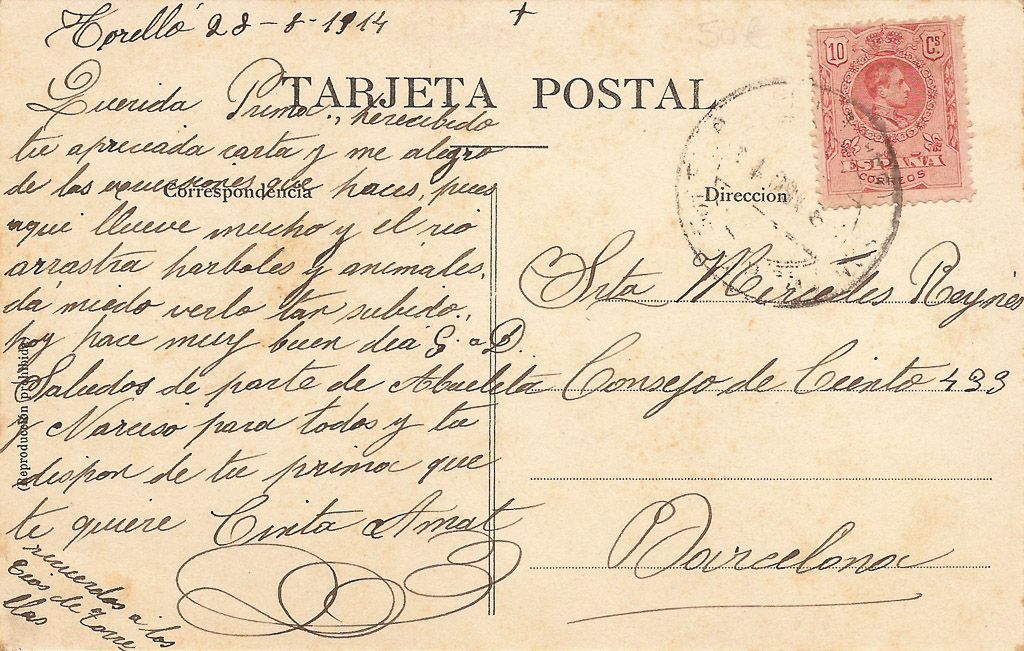 Torelló 28-8-1914
50€
10 Cs
ESPAÑA
CORREOS
TARJETA POSTAL
Correspondencia
Direccion
(Reproducción prohibida)
Querida Prima, he recibido
tu apreciada carta y me alegro
de las que haces, pues
aqui llueve mucho y el rio
arrastra harboles y animales,
da miedo verlo tan subido.,
hoy hace muy buen dia G. a D.
Saludos de parte de Abuelita
y Narciso para todos y tu
dispon de tu prima que
te quiere Cinta Amat
recuerdos a los
tios de Torre
llas
Srta Mercedes Reynés
Consejo de Ciento 433
Barcelona